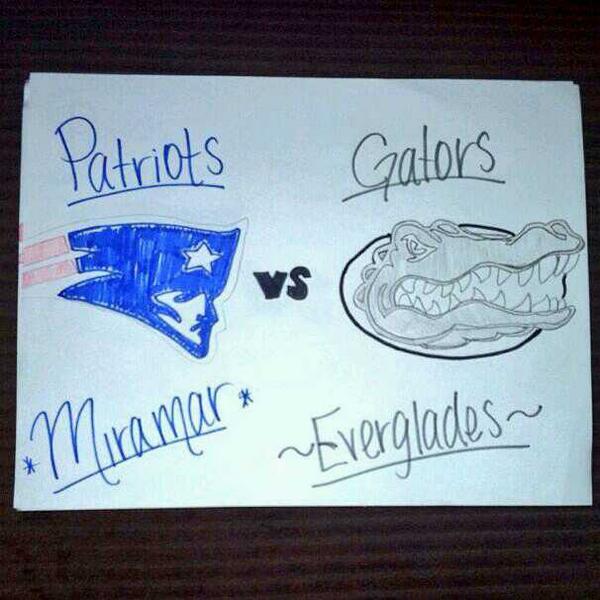 Patriots Gators
vs
*Miramar* ~Everglades~